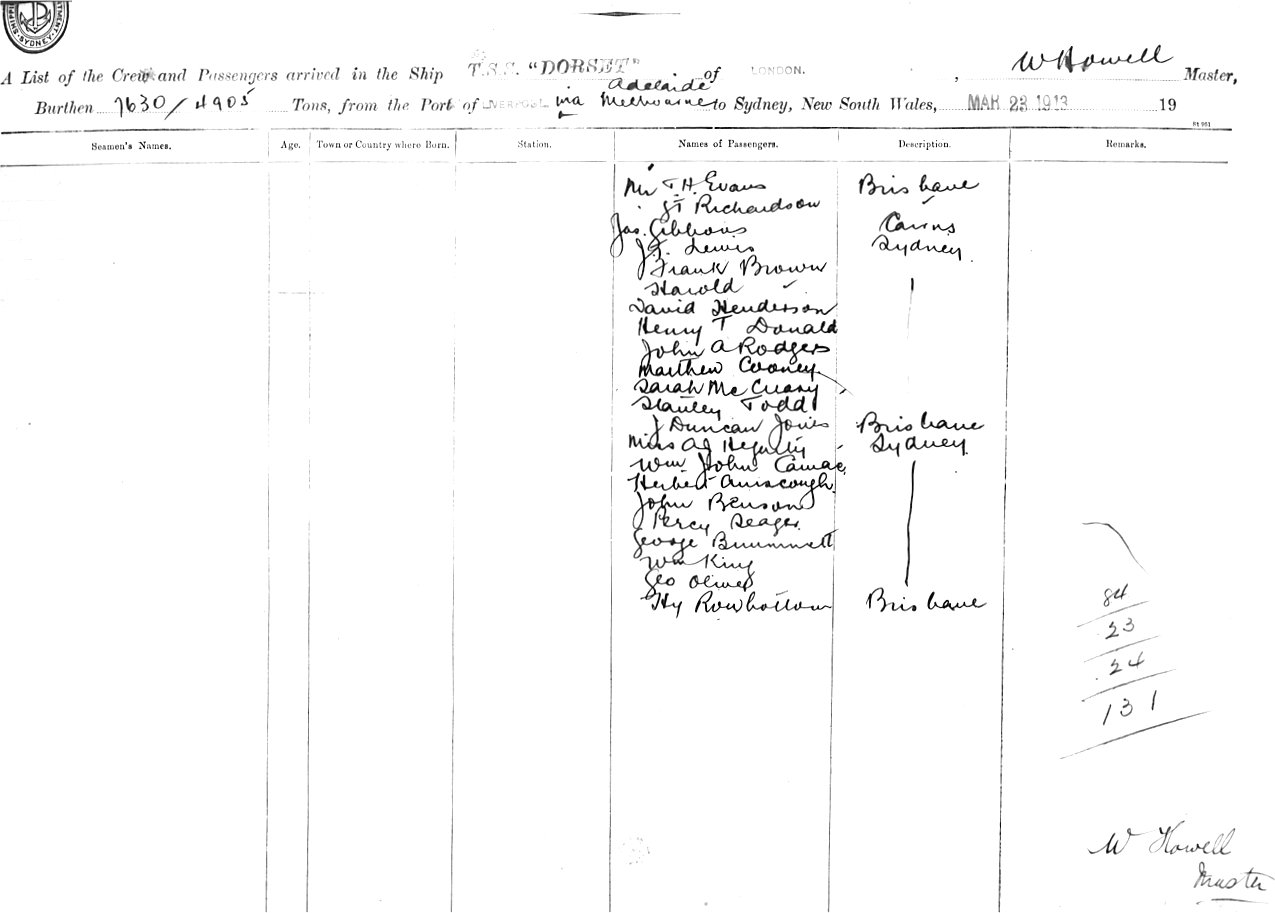 SYDNEY
A List of the Crew and Passengers arrived in the Ship T.S.S. "DORSET" of LONDON. , W Howell Master,
Burthen 7630/4905 Tons, from the Port of LIVERPOOL via Adelaide Melbourne to Sydney, New South Wales, MAR 23 1913 19
St 961
Seamen's Names. Age. Town or Country where Born. Station. Names of Passengers. Description. Remarks.
Mr T.H. Evans Brisbane
Richardson
Jas. Gibbons Cairns
J.F. Lewis Sydney
Frank Brown
Harold
David Henderson
Henry T Donald
John A Rodgers
Matthew Cooney
Sarah McCreary
Stanley Todd
J Duncan Jones Brisbane
Miss Hegarty Sydney
Wm John Camac
Herbert Ainscough
John Benson
Percy Seager
George Brummett
Wm King
Geo Oliver
Hy Rowbottom Brisbane
84
23
24
131
W Howell
Master